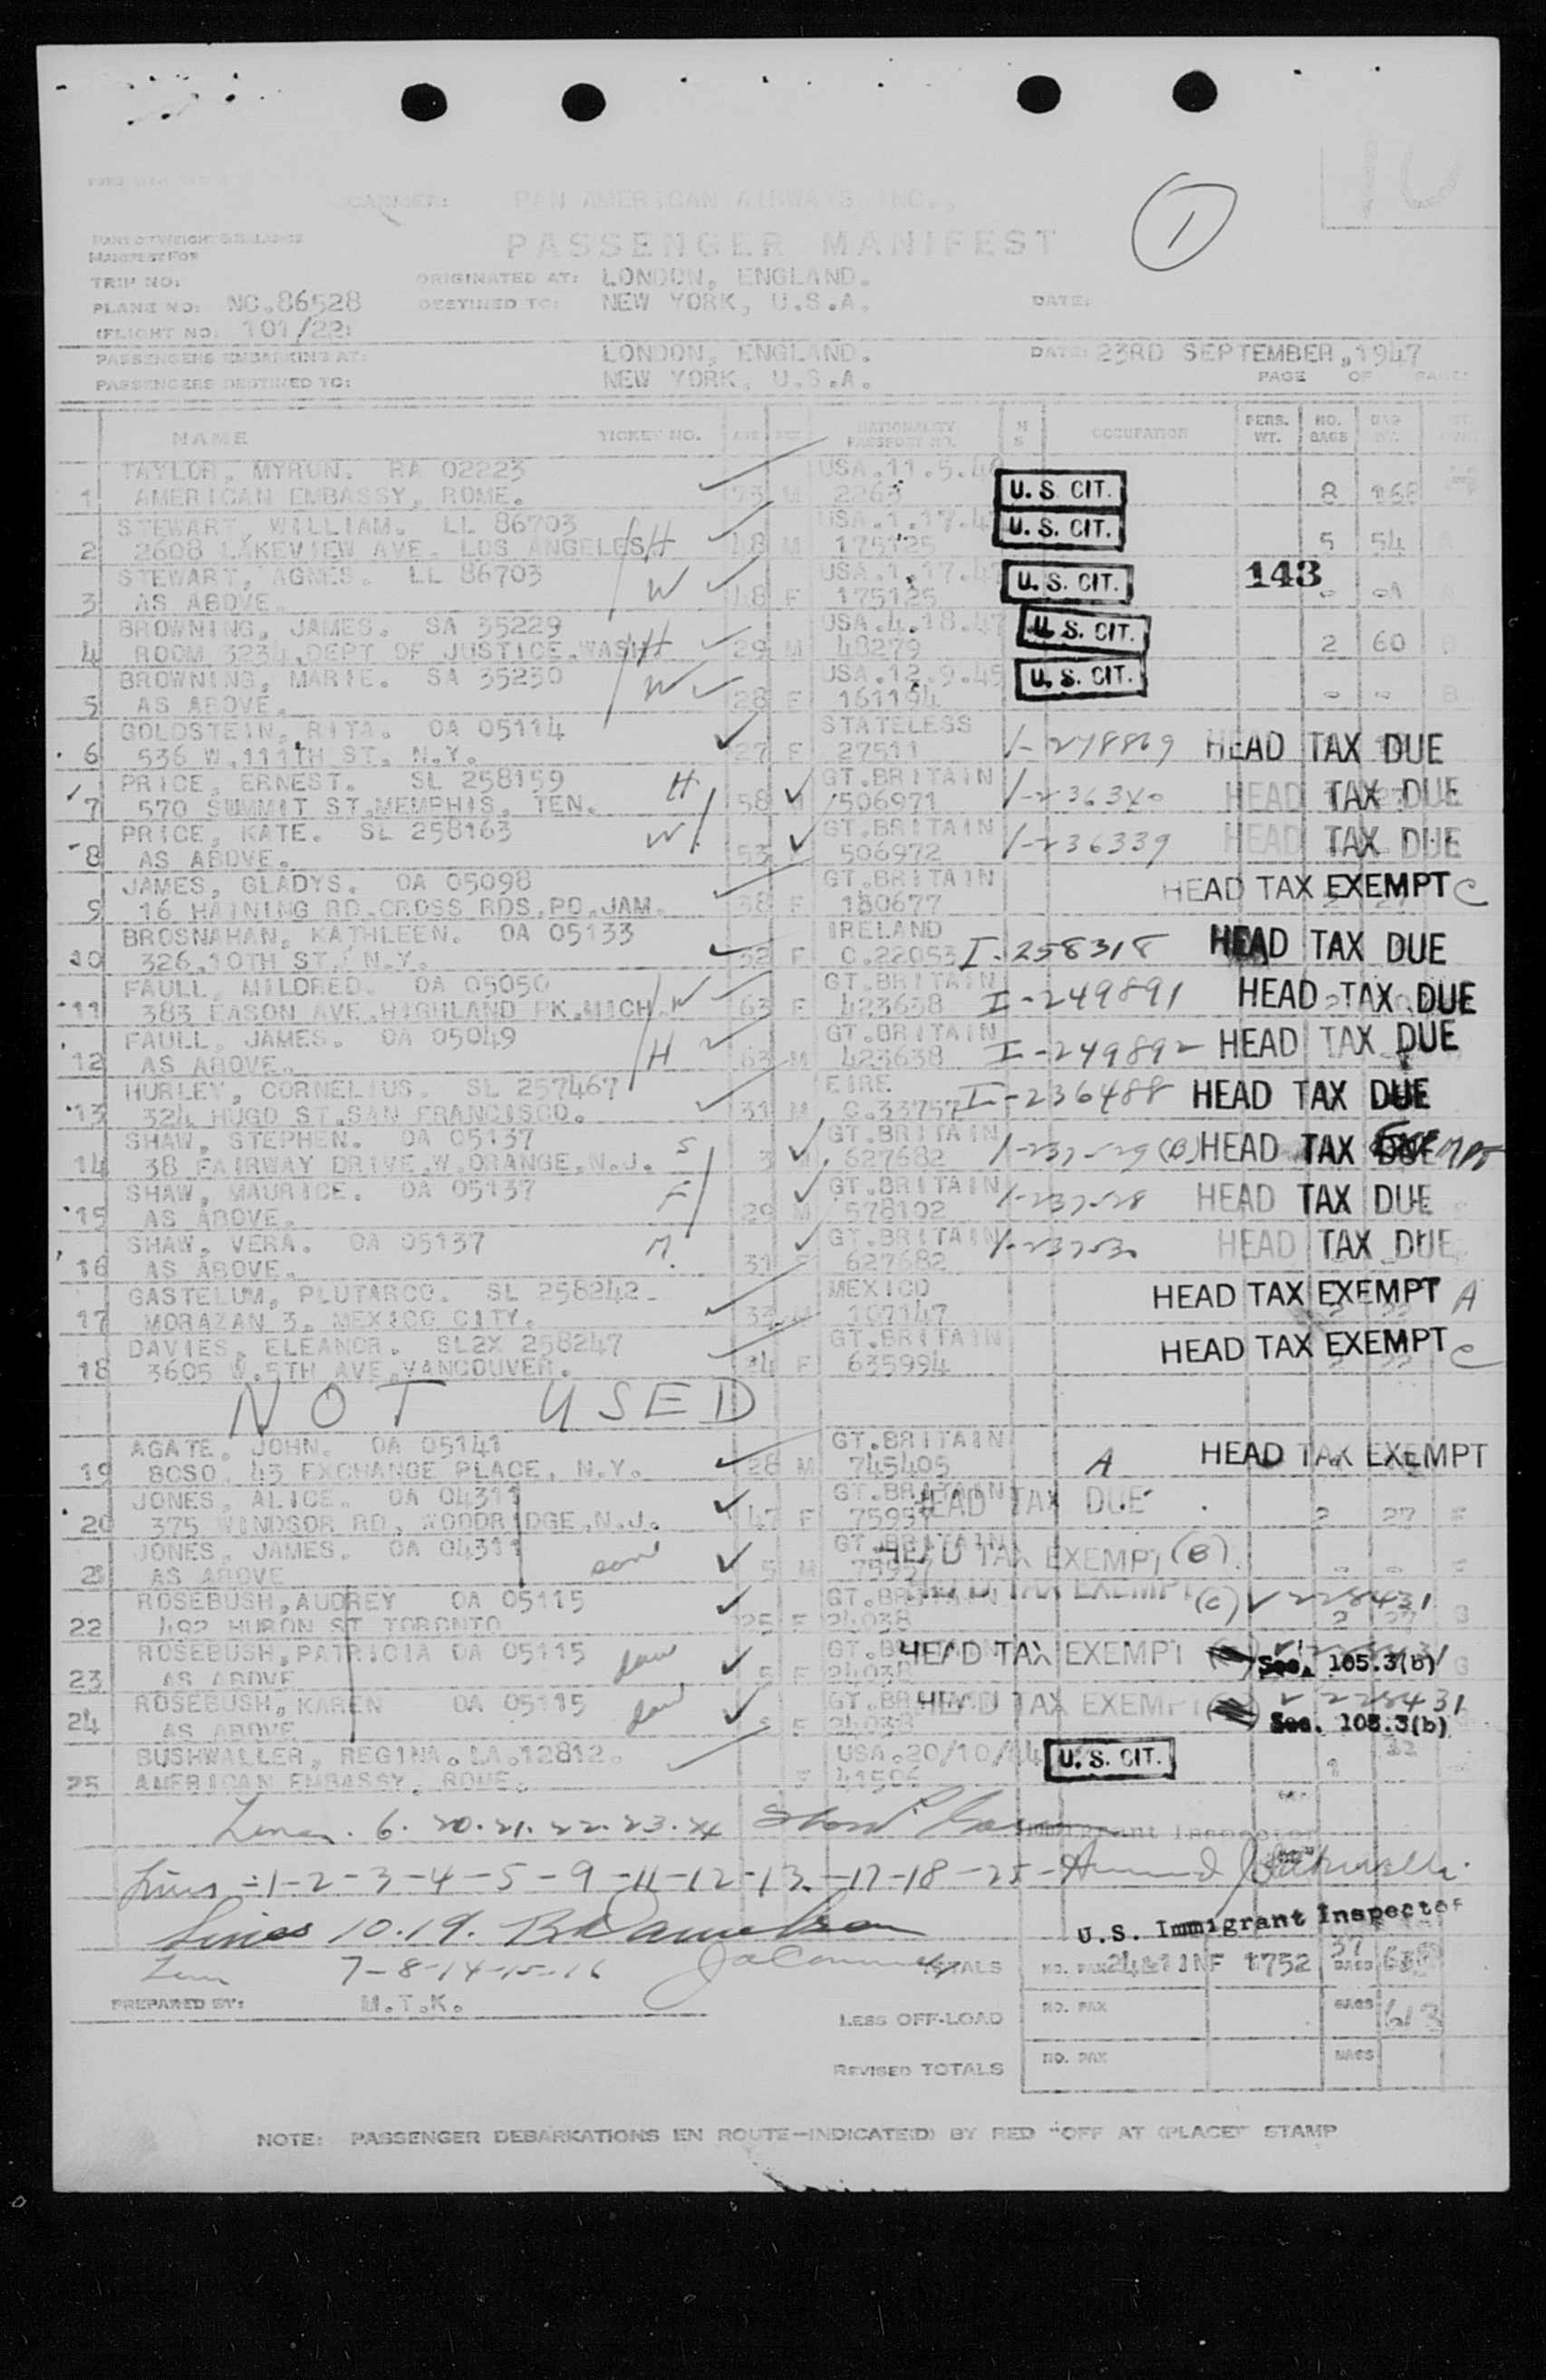 10
CARRIER: PAN AMERICAN AIRWAYS INC.,
1
PART OF WEIGHT & BALANCE
MANIFEST FOR
PASSENGER MANIFEST
TRIP NO: ORIGINATED AT: LONDON, ENGLAND.
PLANE NO: NC.86528 DESTINED TO: NEW YORK, U.S.A. DATE:
(FLIGHT NO: 101/22)
PASSENGERS EMBARKING AT: LONDON, ENGLAND. DATE: 23RD SEPTEMBER, 1947
PASSENGERS DESTINED TO: NEW YORK, U.S.A. PAGE OF PAGES
NAME TICKET NO. AGE SEX NATIONALITY PASSPORT NO. M S OCCUPATION PERS. WT. NO. BAGS BAG WT.
TAYLOR, MYRON. RA 02223 USA.11.5.4
1 AMERICAN EMBASSY, ROME. 73 M 2263 U.S. CIT. 8 168
STEWART, WILLIAM. LL 86703 USA.1.17.4 U.S. CIT.
2 2608 LAKEVIEW AVE. LOS ANGELES H 48 M 175125 5 54
STEWART, AGNES. LL 86703 W USA.1.17.47 U.S. CIT. 143
3 AS ABOVE. 48 F 175125
BROWNING, JAMES. SA 35229 USA.4.18.47 U.S. CIT.
4 ROOM 3234, DEPT OF JUSTICE.WASH H 29 M 48279 2 60 B
BROWNING, MARIE. SA 35230 W USA.12.9.45 U.S. CIT.
5 AS ABOVE. 28 F 161194 - - B
GOLDSTEIN, RITA. OA 05114 STATELESS
6 536 W.111TH ST. N.Y. 27 F 27511 1-278869 HEAD TAX DUE
PRICE, ERNEST. SL 258159 H GT.BRITAIN
7 570 SUMMIT ST.MEMPHIS, TEN. 58 M 506971 1-236340 HEAD TAX DUE
PRICE, KATE. SL 258163 W GT.BRITAIN 1-236339 HEAD TAX DUE
8 AS ABOVE. 53 F 506972
JAMES, GLADYS. OA 05098 GT.BRITAIN HEAD TAX EXEMPT C
9 16 HAINING RD.CROSS RDS.PO.JAM. 38 F 180677
BROSNAHAN, KATHLEEN. OA 05133 IRELAND
10 326.10TH ST. N.Y. 32 F C.22053 I-258318 HEAD TAX DUE
FAULL, MILDRED. OA 05050 W GT.BRITAIN
11 383 EASON AVE.HIGHLAND PK.MICH 63 F 423638 I-249891 HEAD TAX DUE
FAULL, JAMES. OA 05049 H GT.BRITAIN
12 AS ABOVE. 63 M 423638 I-249892 HEAD TAX DUE
HURLEY, CORNELIUS. SL 257467 EIRE
13 324 HUGO ST.SAN FRANCISCO. 31 M C.33757 I-236488 HEAD TAX DUE
SHAW, STEPHEN. OA 05137 S GT.BRITAIN
14 38 FAIRWAY DRIVE.W.ORANGE.N.J. 3 M 627682 1-237529 (B) HEAD TAX Exempt
SHAW, MAURICE. OA 05137 F GT.BRITAIN
15 AS ABOVE. 29 M 578102 1-237528 HEAD TAX DUE
SHAW, VERA. OA 05137 M. GT.BRITAIN 1-237530 HEAD TAX DUE
16 AS ABOVE. 31 F 627682
GASTELUM, PLUTARCO. SL 258242 MEXICO HEAD TAX EXEMPT A
17 MORAZAN 3. MEXICO CITY. 33 M 107147
DAVIES, ELEANOR. SL2X 258247 GT.BRITAIN HEAD TAX EXEMPT C
18 3605 W.5TH AVE.VANCOUVER. 24 F 635994
NOT USED
AGATE, JOHN. OA 05141 GT.BRITAIN
19 BCSO, 43 EXCHANGE PLACE, N.Y. 28 M 745405 A HEAD TAX EXEMPT
JONES, ALICE. OA 04311 GT.BRITAIN HEAD TAX DUE
20 375 WINDSOR RD, WOODRIDGE, N.J. 47 F 7595 2 27
JONES, JAMES. OA 04311 son GT.BRITAIN HEAD TAX EXEMPT (B)
21 AS ABOVE 5 M 7595
ROSEBUSH, AUDREY OA 05115 GT.BRITAIN HEAD TAX EXEMPT (C) 228431
22 492 HURON ST TORONTO 25 F 24038 2 27 G
ROSEBUSH, PATRICIA OA 05115 dau GT.BRITAIN HEAD TAX EXEMPT 228431
23 AS ABOVE 5 F 24038 Sec. 105.3(b) G
ROSEBUSH, KAREN OA 05115 dau GT.BRITAIN HEAD TAX EXEMPT 228431
24 AS ABOVE F 24038 Sec. 105.3(b)
BUSHWALLER, REGINA. LA.12812. USA.20/10/44 U.S. CIT. 32
25 AMERICAN EMBASSY, ROME. F 41506 1
Lines. 6. 20. 21. 22. 23. 24 Immigrant Inspector
Lines - 1-2-3-4-5-9-11-12-13-17-18-25-
Lines 10.19.
U.S. Immigrant Inspector
Lines 7-8-14-15-16 TOTALS NO. PAX 24&1 INF 1752 37 BAGS
PREPARED BY: M.T.K.
LESS OFF-LOAD NO. PAX BAGS 613
REVISED TOTALS NO. PAX BAGS
NOTE: PASSENGER DEBARKATIONS EN ROUTE-INDICATE(D) BY RED "OFF AT (PLACE)" STAMP